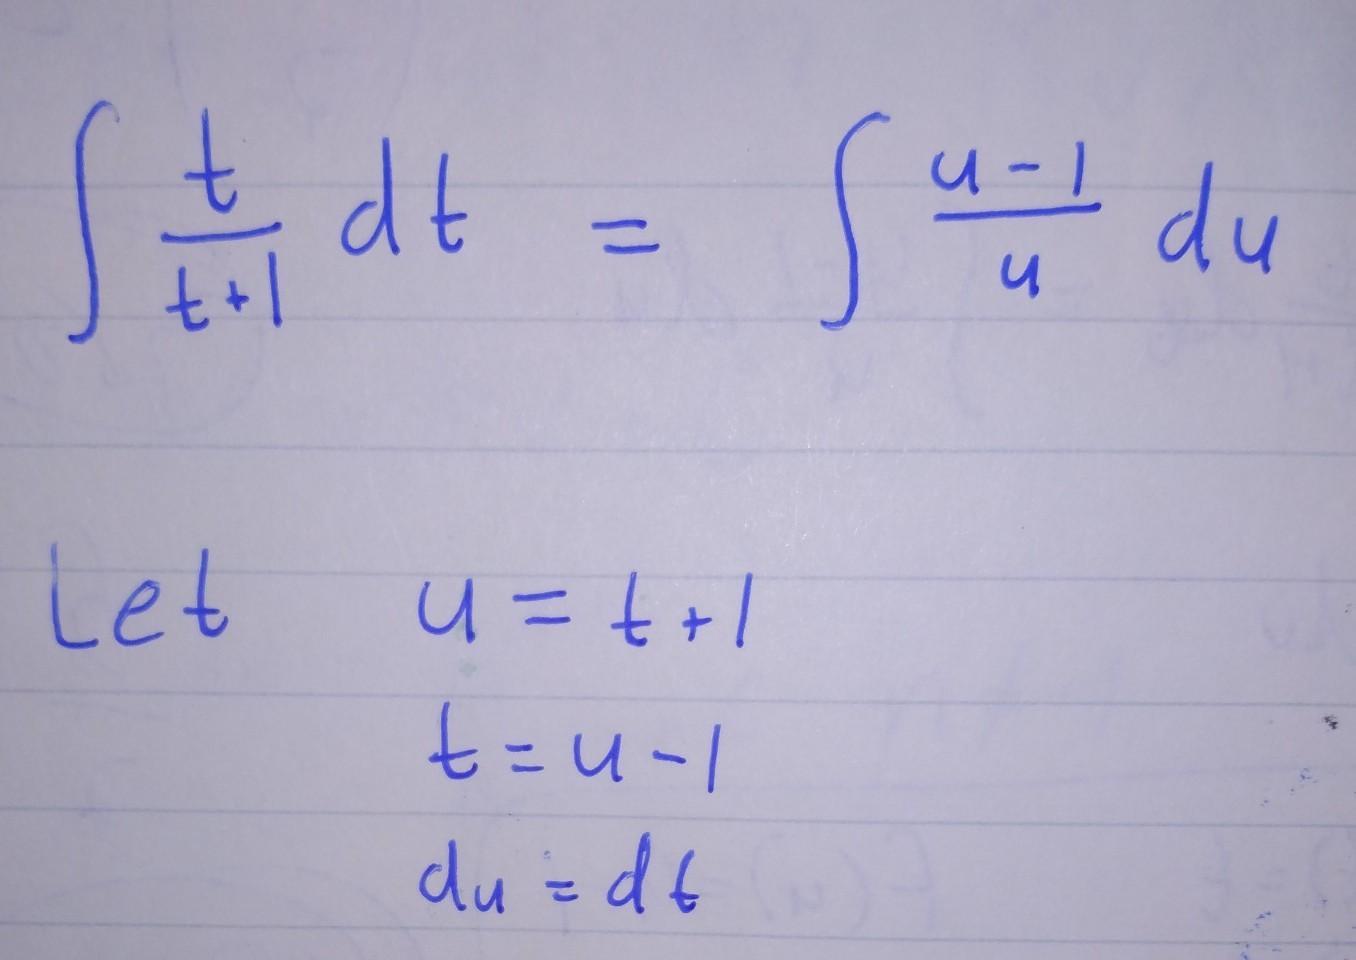 ∫ t/(t+1) dt = ∫ (u-1)/u du
Let u = t+1
t = u-1
du = dt